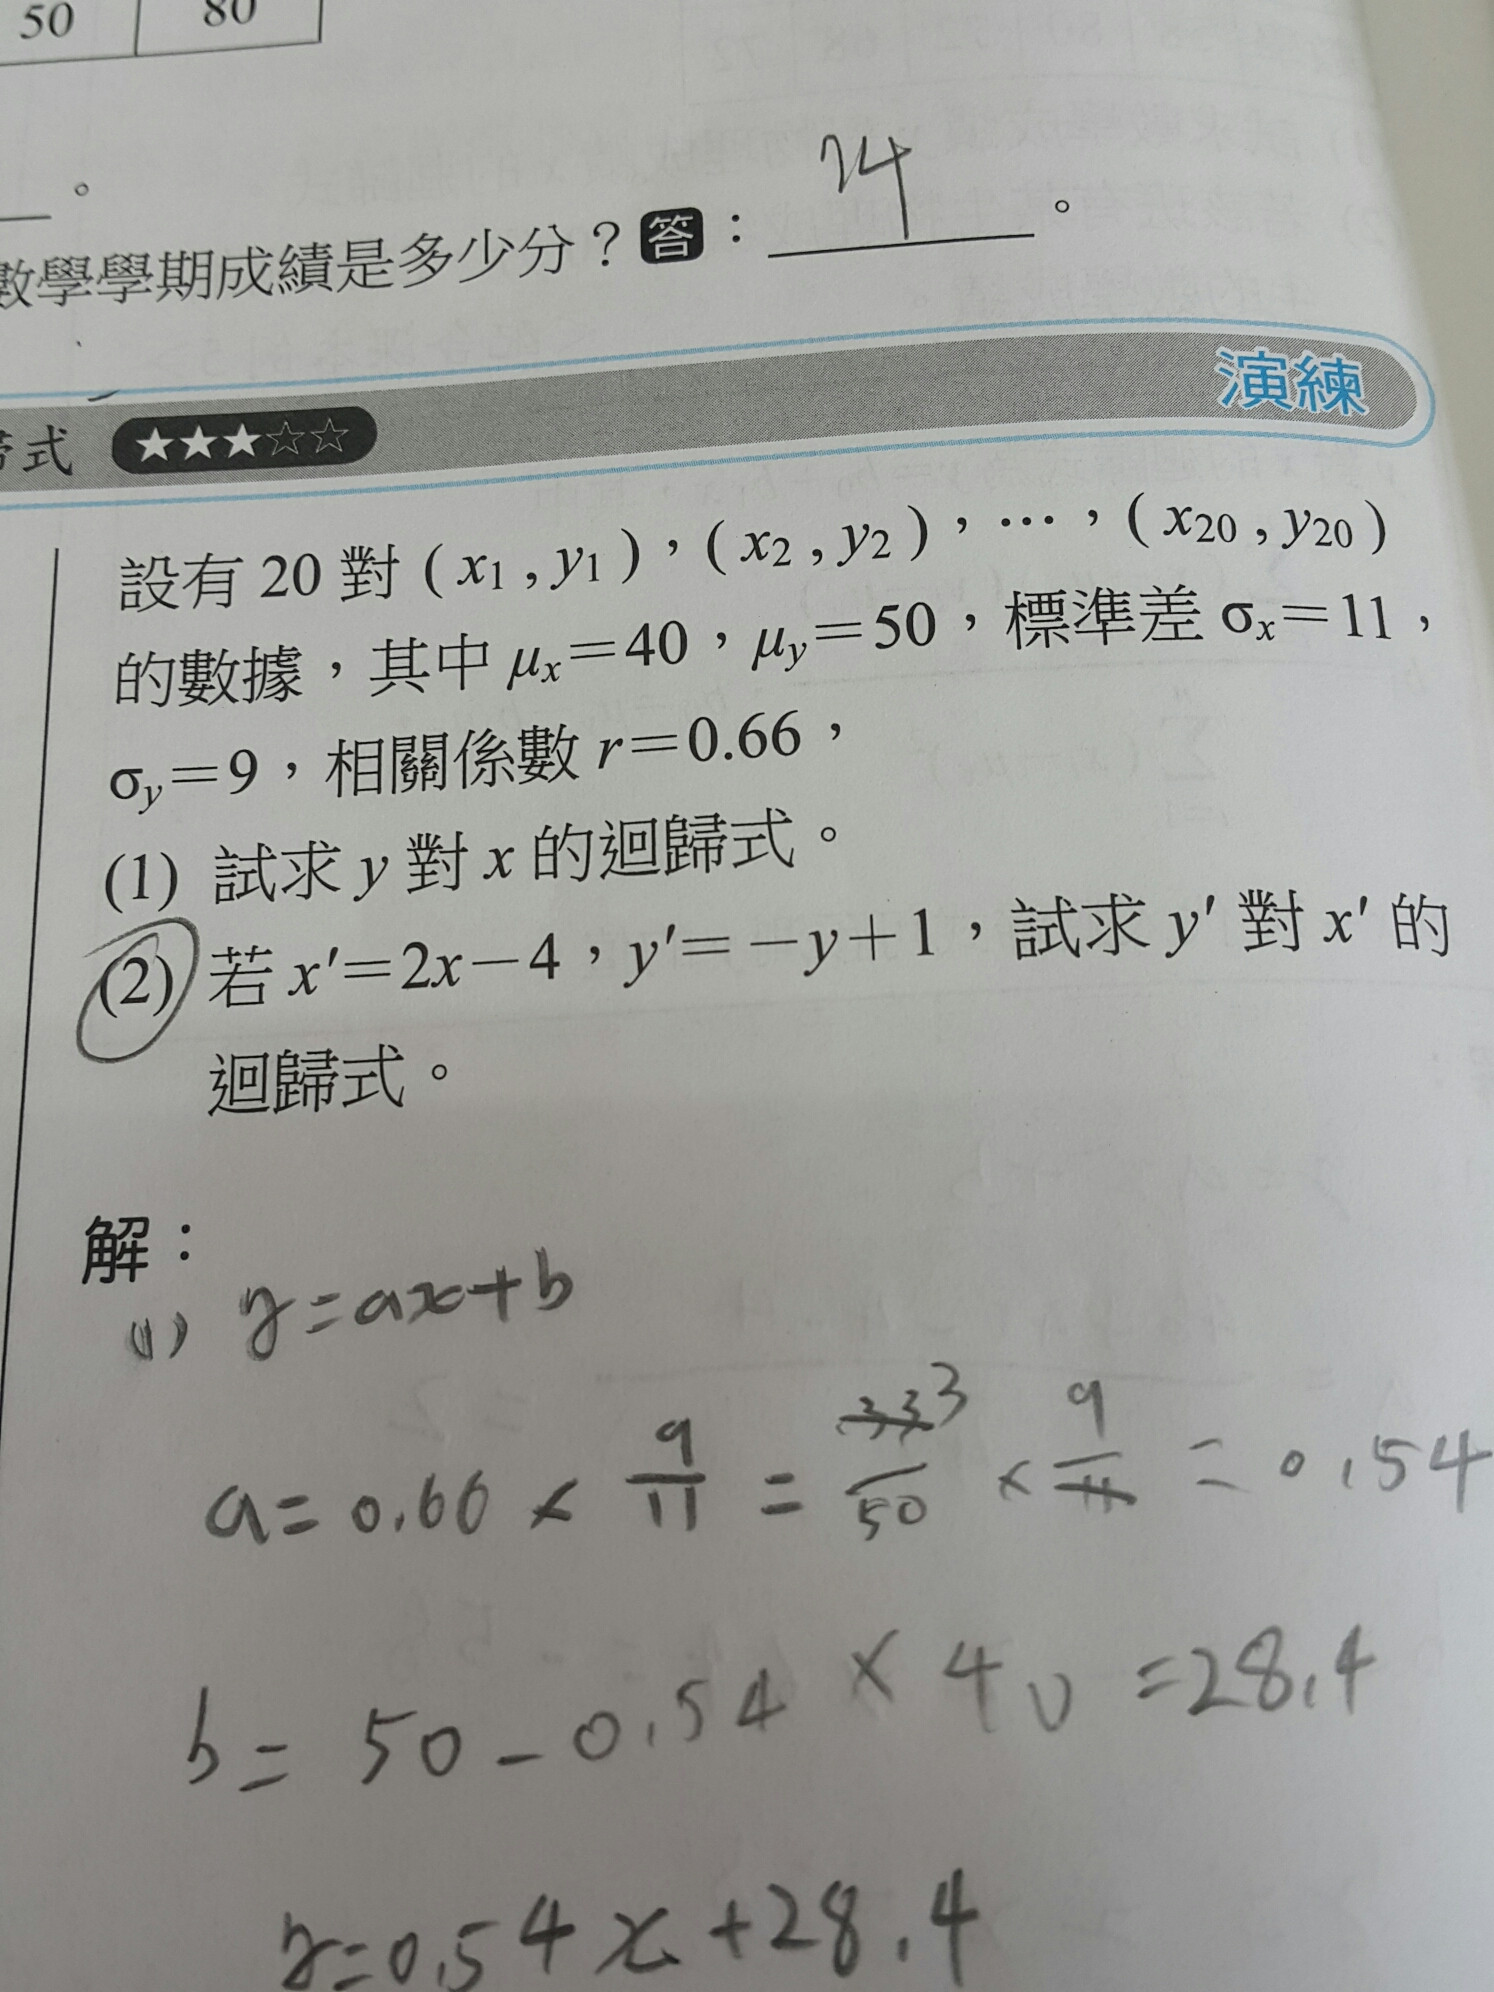 50 80
。
數學學期成績是多少分？答：74。
式 ★★★☆☆
演練
設有 20 對 ( x1 , y1 )，( x2 , y2 )，…，( x20 , y20 )
的數據，其中 μx＝40，μy＝50，標準差 σx＝11，
σy＝9，相關係數 r＝0.66，
(1) 試求 y 對 x 的迴歸式。
(2) 若 x'＝2x－4，y'＝－y＋1，試求 y' 對 x' 的
迴歸式。
解：
(1) y=ax+b
a= 0.66 × 9/11 = 33 3/50 × 9/11 = 0.54
b= 50 - 0.54 × 40 =28.4
y=0.54x+28.4